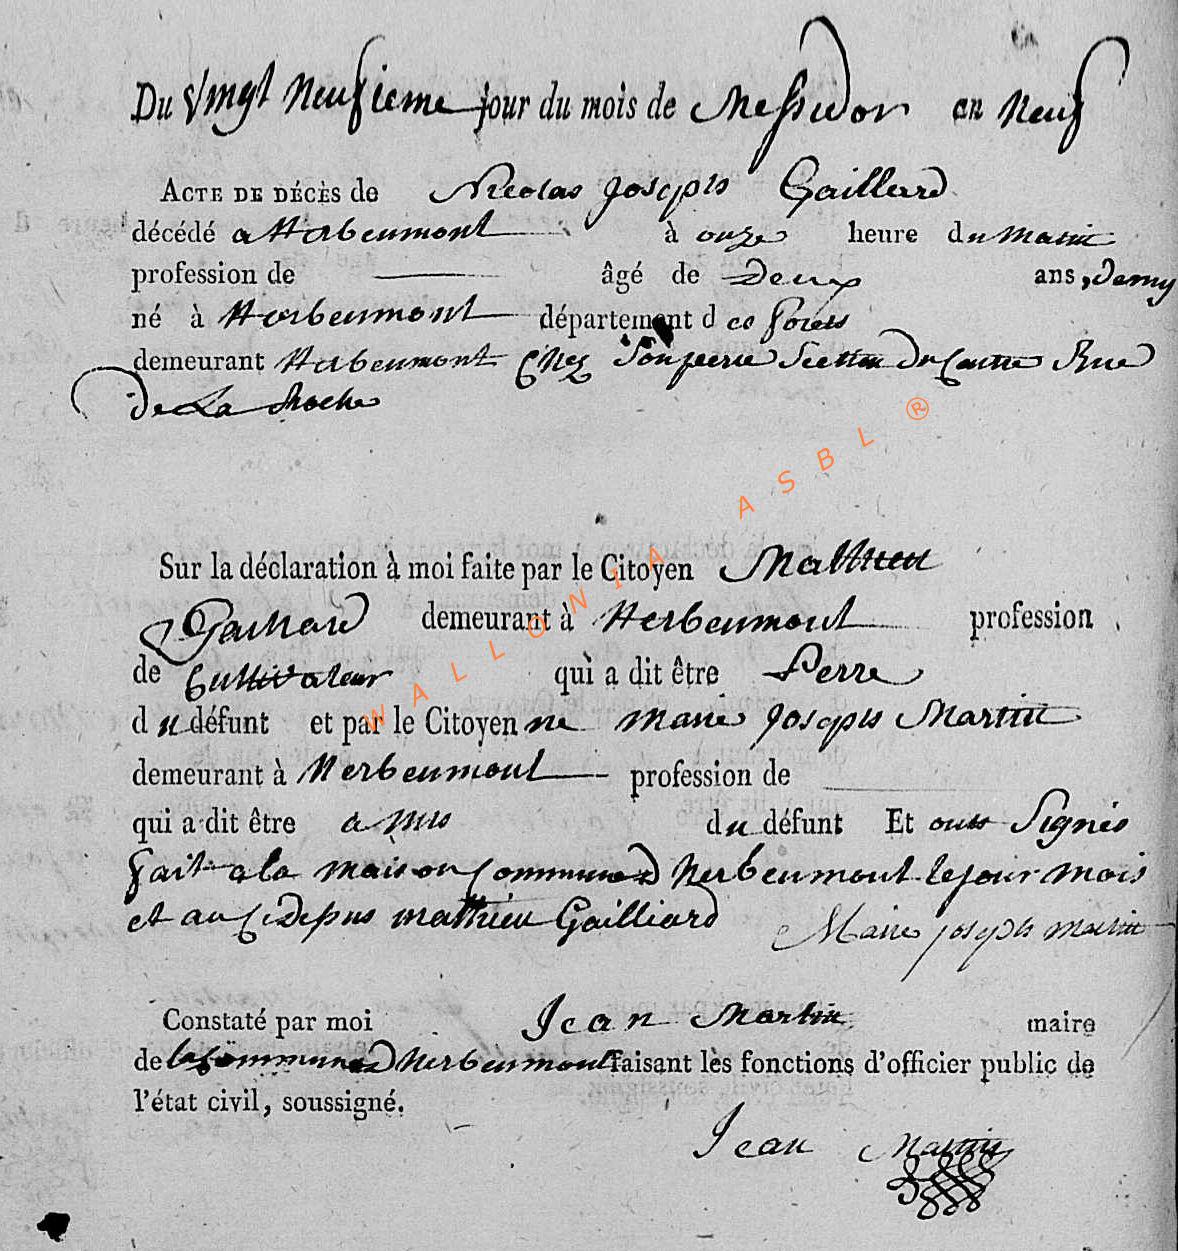 Du Vingt Neufieme jour du mois de Messidor an Neuf
ACTE DE DÉCÈS de Nicolas Joseph Gaillard
décédé a Herbeumont à onze heure du Matin
profession de âgé de Deux ans, demy
né à Herbeumont département des forets
demeurant Herbeumont Chez Son pere Section du Centre Rue
De La Roche
Sur la déclaration à moi faite par le Citoyen Mathieu
Gaillard demeurant à Herbeumont profession
de Cultivateur qui a dit être Perre
du défunt et par le Citoyenne Marie Joseph Martin
demeurant à Herbeumont profession de
qui a dit être a Mis du défunt Et onts Signés
fait a la maison Commune d Herbeumont le jour mois
et an Cidessus mathieu Gailliard Marie joseph martin
Constaté par moi Jean Martin maire
de la Commune d Herbeumont faisant les fonctions d'officier public de
l'état civil, soussigné.
Jean Martin
WALLONIA ASBL ®